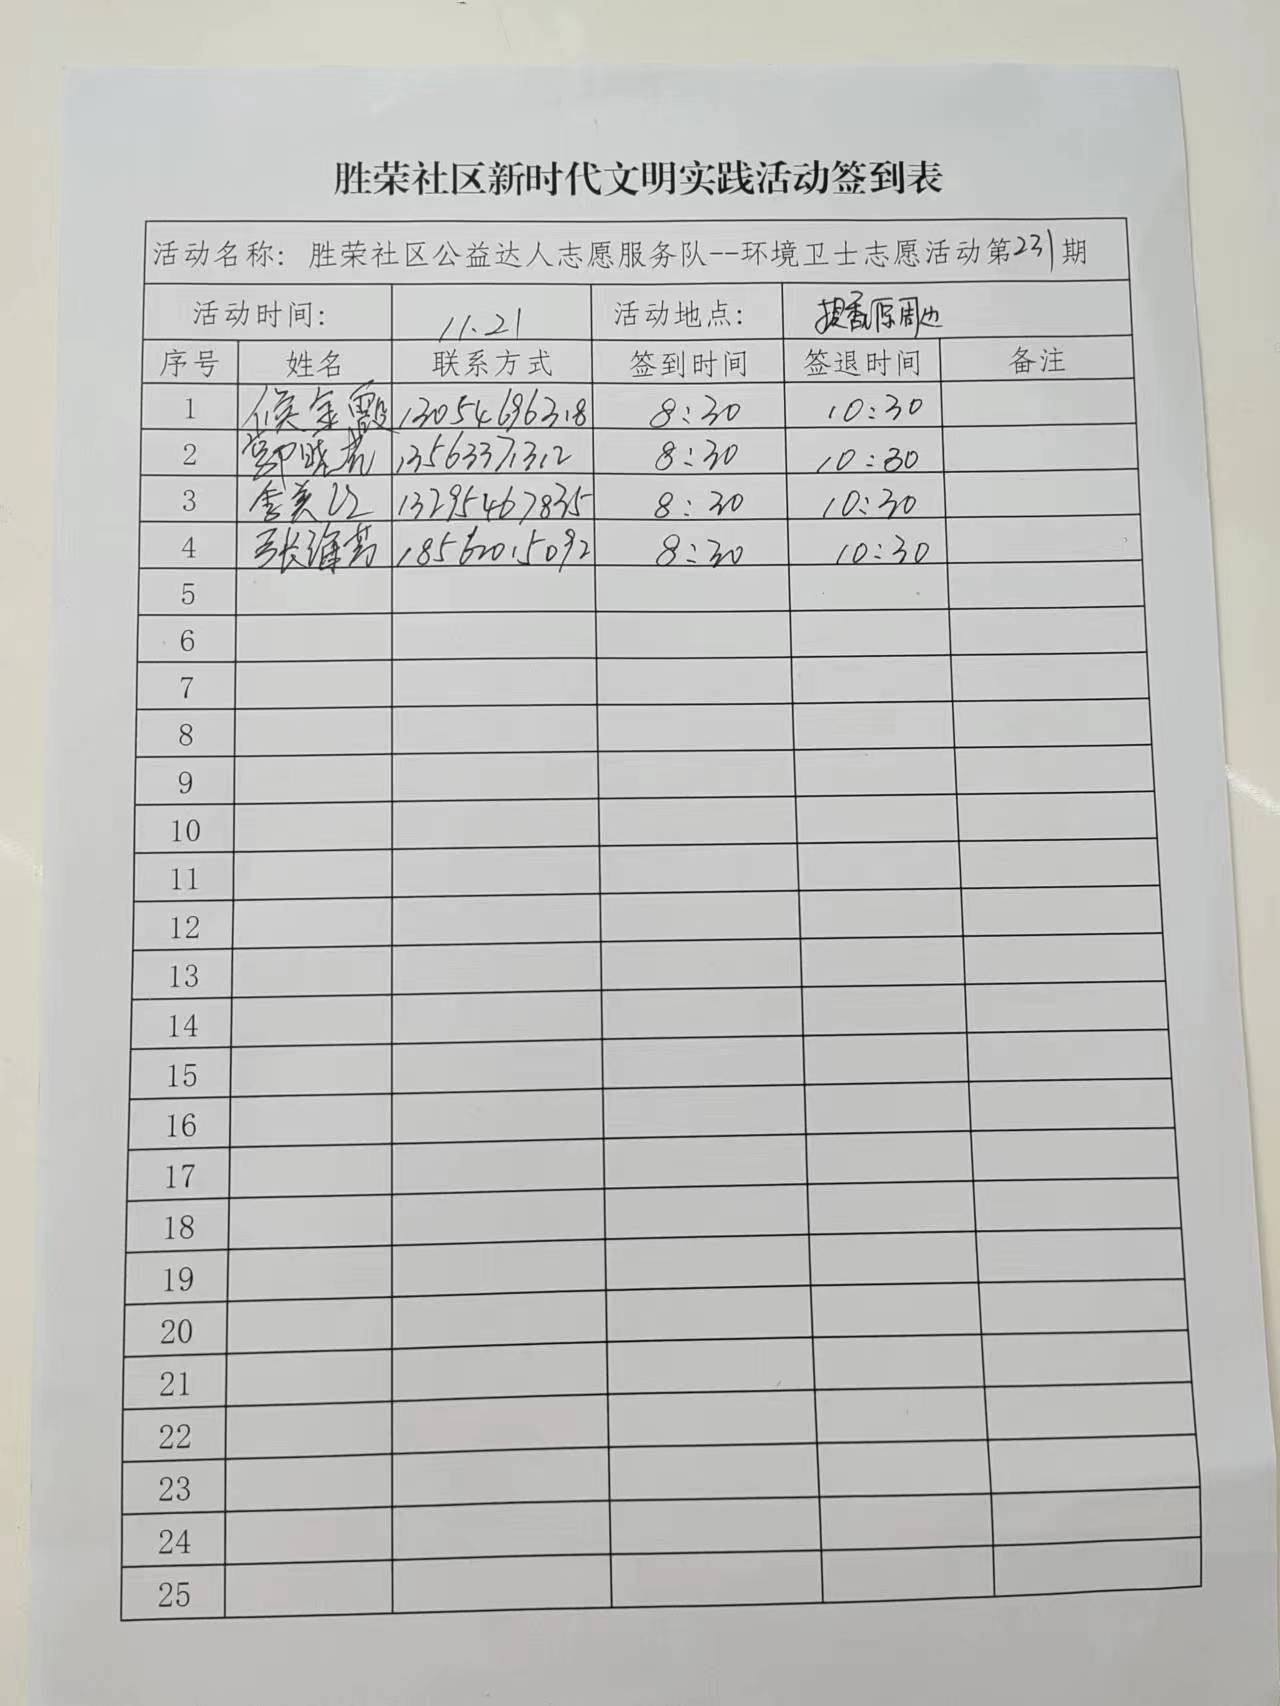 胜荣社区新时代文明实践活动签到表
活动名称：胜荣社区公益达人志愿服务队--环境卫士志愿活动第231期
活动时间： 11.21 活动地点： 提香原周边
序号 姓名 联系方式 签到时间 签退时间 备注
1 侯金霞 13054696318 8:30 10:30
2 13563371312 8:30 10:30
3 李美江 13295467835 8:30 10:30
4 张海英 18562015092 8:30 10:30
5
6
7
8
9
10
11
12
13
14
15
16
17
18
19
20
21
22
23
24
25